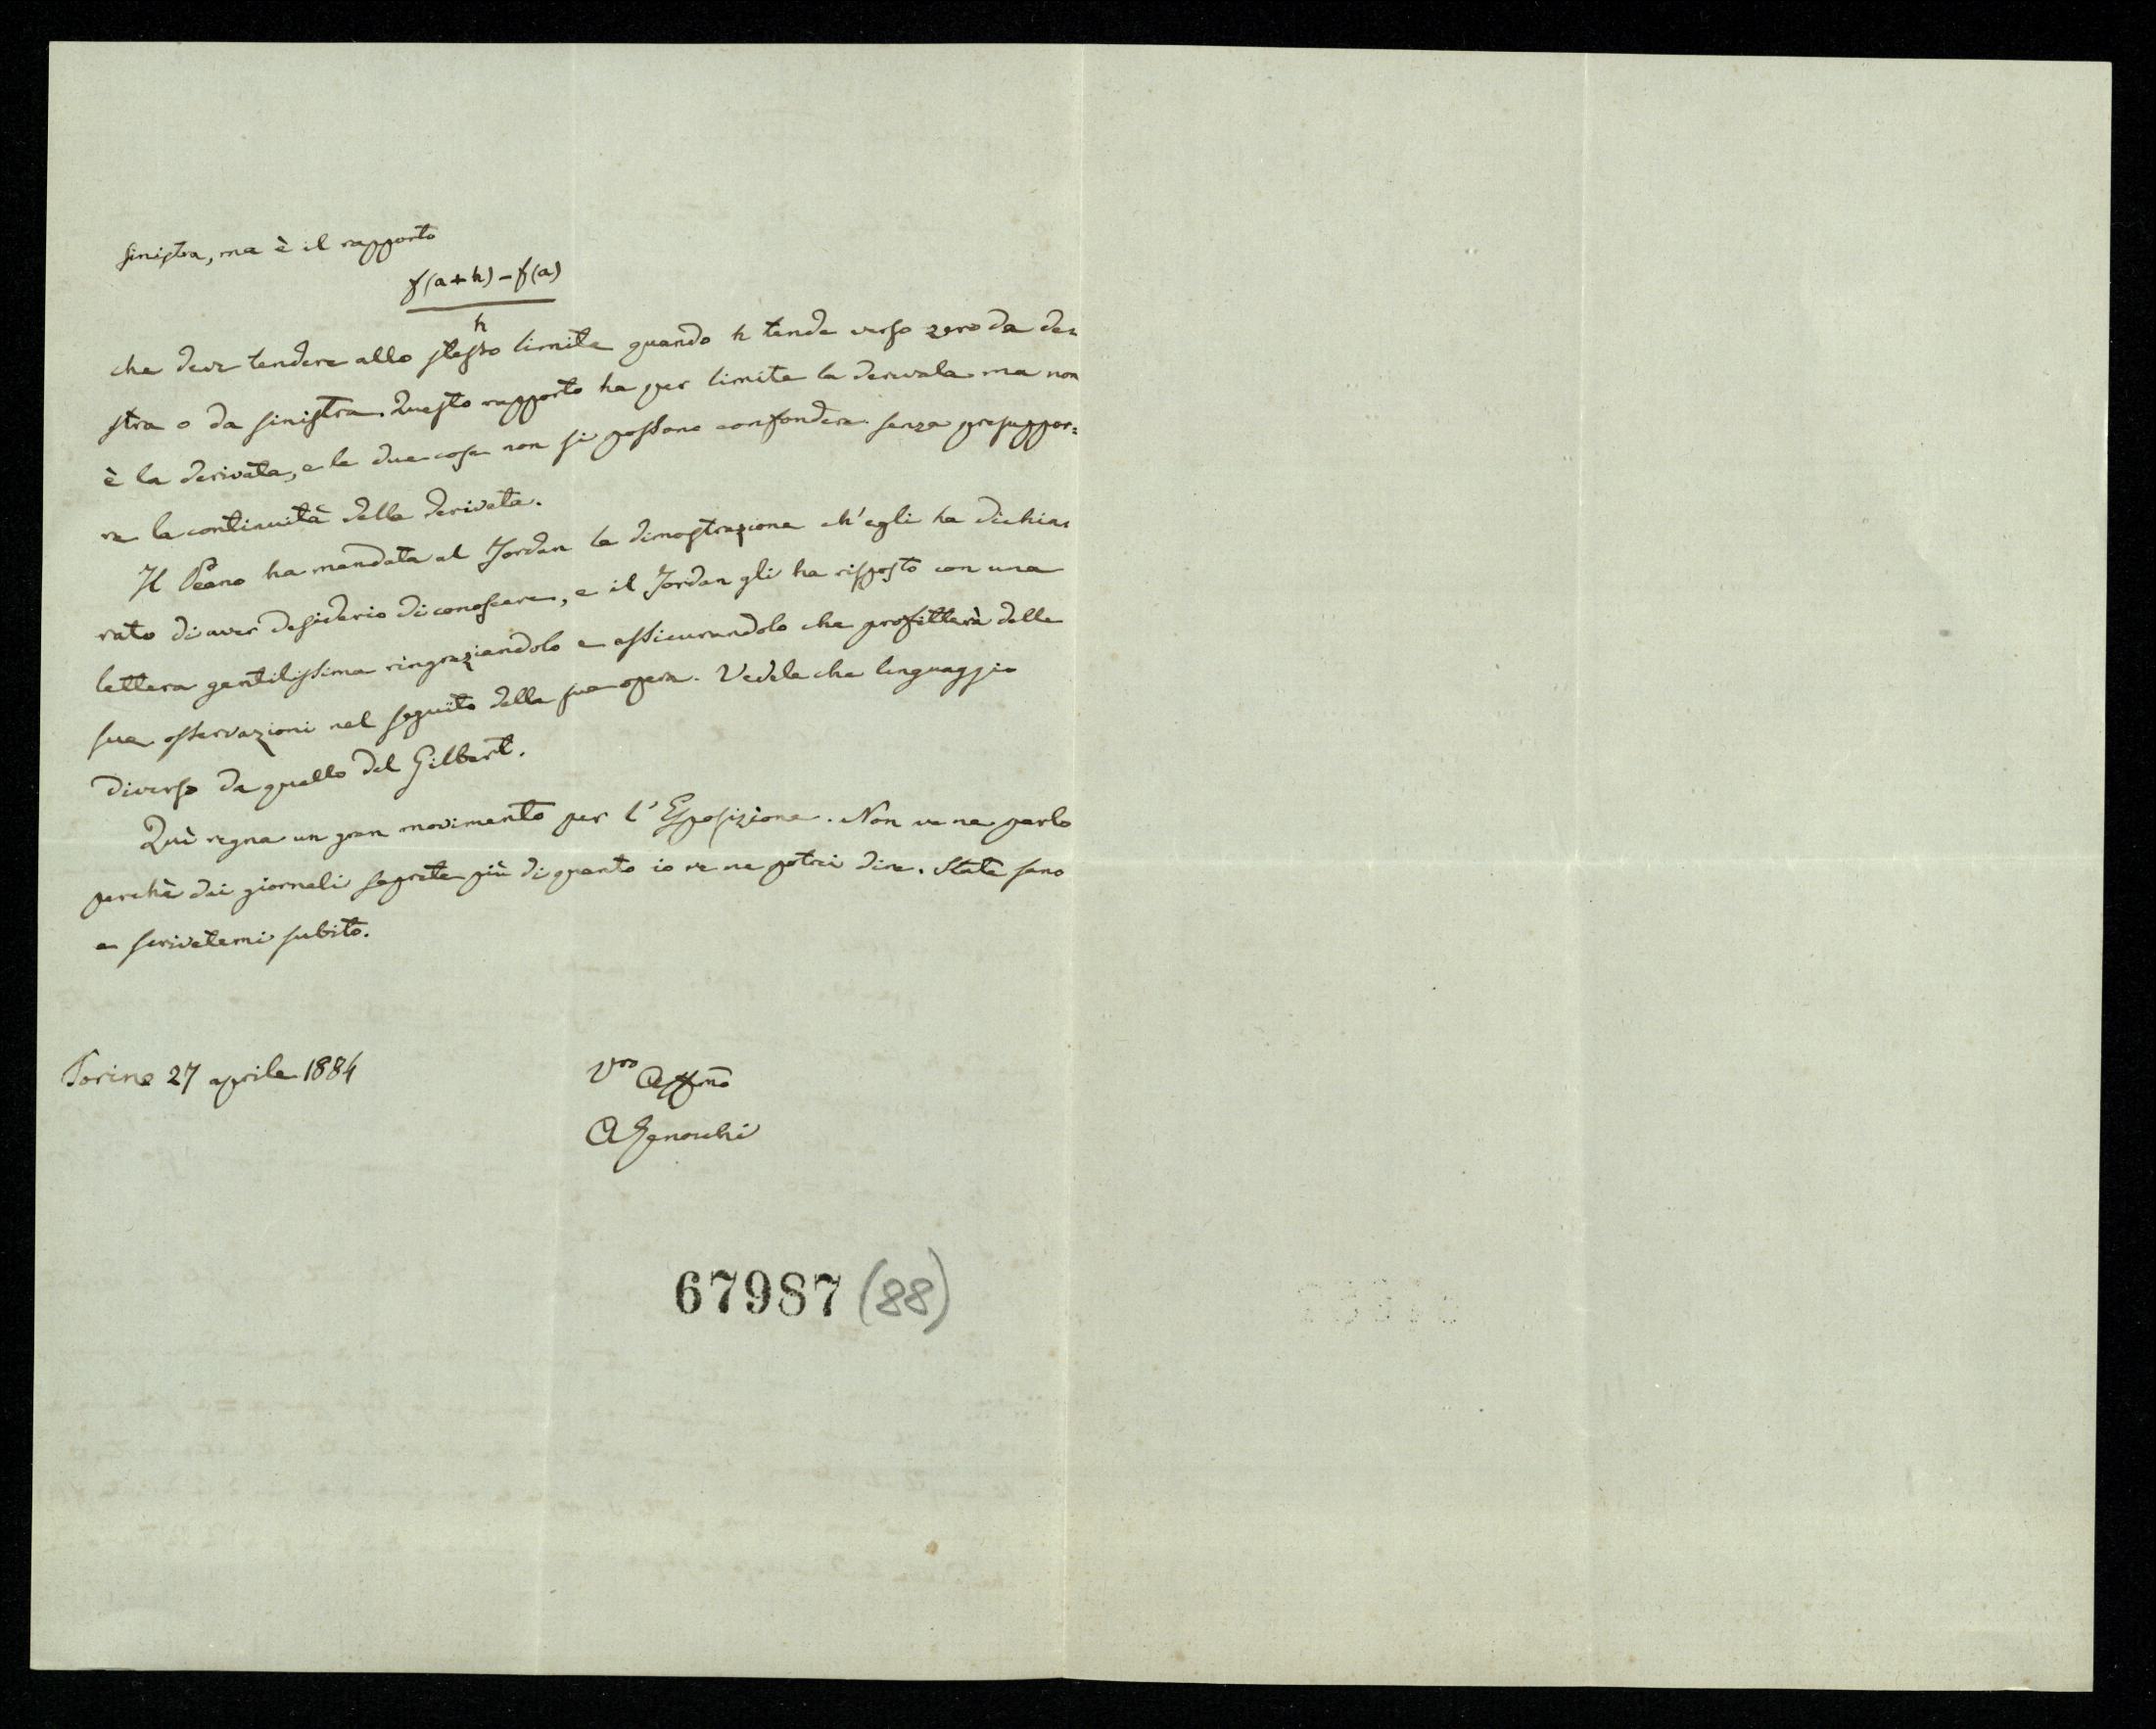 sinistra, ma è il rapporto
f(a+h)-f(a)
h
che deve tendere allo stesso limite quando h tende verso zero da de=
stra o da sinistra. Questo rapporto ha per limite la derivata ma non
è la derivata, e le due cose non si possono confondere senza presuppor=
re la continuità della derivata.
Il Peano ha mandata al Jordan la dimostrazione ch'egli ha dichia=
rato di aver desiderio di conoscere, e il Jordan gli ha risposto con una
lettera gentilissima ringraziandolo e assicurandolo che profitterà delle
sue osservazioni nel seguito della sua opera. Vedete che linguaggio
diverso da quello del Gilbert.
Quì regna un gran movimento per l'Esposizione. Non ve ne parlo
perchè dai giornali saprete più di quanto io ve ne potrei dire. State sano
e scrivetemi subito.
Torino 27 aprile 1884
Vro Affmo
A Genocchi
67987 (88)